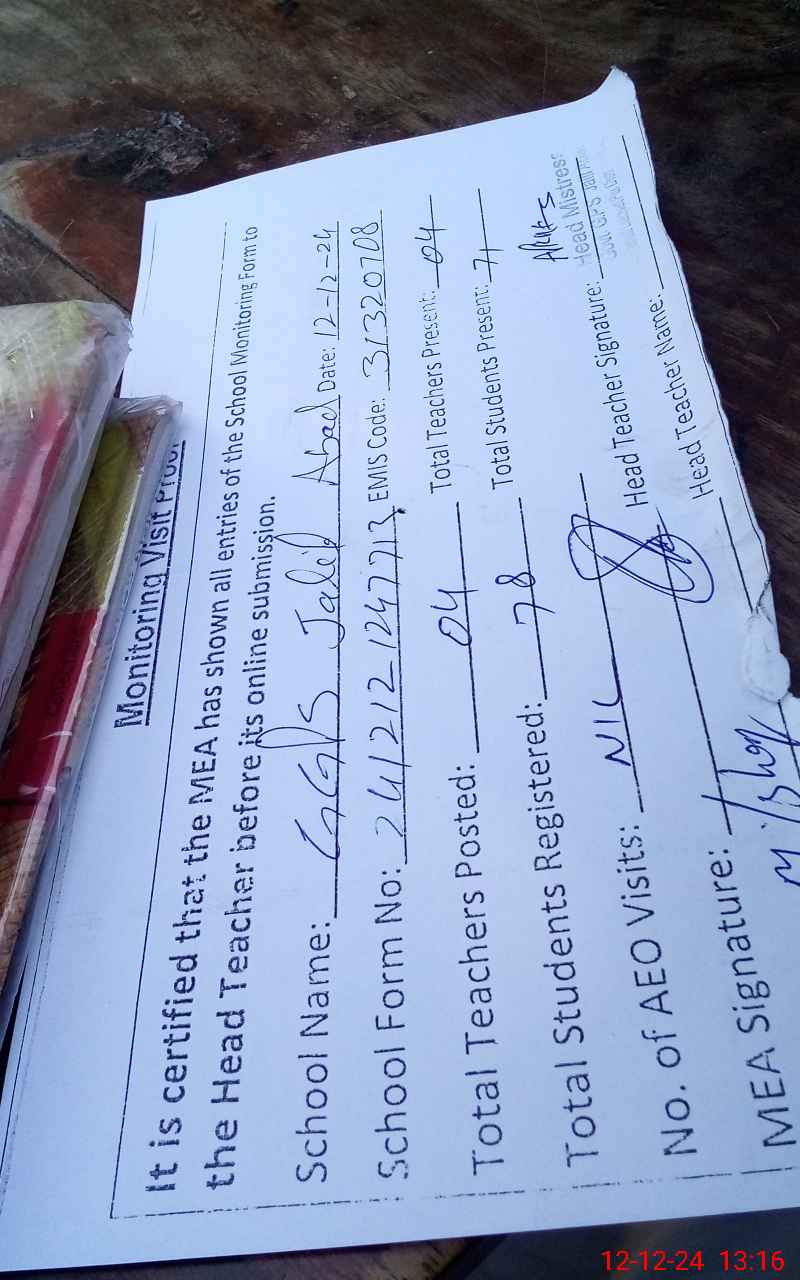 Monitoring Visit Proof
It is certified that the MEA has shown all entries of the School Monitoring Form to
the Head Teacher before its online submission.
School Name: GGPS Jalil Abad Date: 12-12-24
School Form No: 2412121247713 EMIS Code: 31320708
Total Teachers Posted: 04 Total Teachers Present: 04
Total Students Registered: 78 Total Students Present: 71
No. of AEO Visits: NIL Head Teacher Signature:
Head Mistress
MEA Signature: Head Teacher Name:
12-12-24 13:16